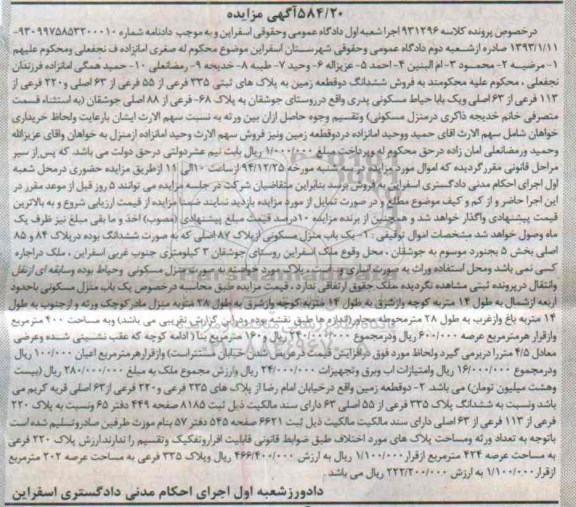 ۵۸۴/۲۰آگهی مزایده
درخصوص پرونده کلاسه ۹۳۱۲۹۶ اجرا شعبه اول دادگاه عمومی وحقوقی اسفراین و به موجب دادنامه شماره ۹۳۰۹۹۷۵۸۵۳۳۰۰۰۱۰-
۱۳۹۳/۱/۱۱ صادره ازشعبه دوم دادگاه عمومی وحقوقی شهرستان اسفراین موضوع محکوم له صغری امانزاده ف نجفعلی ومحکوم علیهم
۱- مرضیه ۲- محمود ۳- ام البنین ۴- احمد ۵- عزیزاله ۶- وحید ۷- طیبه ۸- خدیجه ۹- رمضانعلی ۱۰- حمید همگی امانزاده فرزندان
نجفعلی ، محکوم علیه محکومند به فروش ششدانگ دوقطعه زمین به پلاک های ثبتی ۳۳۵ فرعی از ۵۵ فرعی از ۶۳ اصلی و۲۲۰ فرعی از
۱۱۳ فرعی از ۶۳ اصلی ویک بابا حیاط مسکونی پدری واقع درروستای جوشقان به پلاک ۶۸- فرعی از ۸۸ اصلی جوشقان (به استثناء قسمت
متصرفی خانم خدیجه ذاکری درمنزل مسکونی) وتقسیم وجوه حاصل ازان بین ورثه به نسبت سهم الارث ایشان بارعایت ولحاظ خریداری
خواهان شامل سهم الارث اقای حمید ووحید امانزاده دردوقطعه زمین ونیز فروش سهم الارث وحید امانزاده ازمنزل به خواهان واقای عزیزالله
وحمید ورمضانعلی امان زاده درحق محکوم له وپرداخت مبلغ ۱/۰۰۰/۰۰۰ ریال بابت نیم عشردولتی درحق دولت می باشد. که پس از سیر
مراحل قانونی مقرر گردیده که اموال مورد مزایده در روز سه شنبه مورخه ۹۴/۱۲/۲۵ از ساعت ۱۰ الی ۱۱ ازطریق مزایده حضوری درمحل شعبه
اول اجرای احکام مدنی دادگستری اسفراین به فروش برسد بنابراین متقاضیان شرکت در جلسه مزایده می توانند ۵ روز قبل از موعد مقرر در
این اجرا حاضر و از کم و کیف موضوع مطلع و در صورت تمایل از مورد مزایده بازدید نمایند ضمنا مزایده از قیمت ارزیابی شروع و به بالاترین
قیمت پیشنهادی واگذار خواهد شد و همچنین از برنده مزایده ۱۰درصد قیمت مبلغ پیشنهادی (مصوب) اخذ و ما بقی مبلغ نیز ظرف یک
ماه وصول خواهد شد مشخصات اموال توقیفی ۱۰- یک باب منزل مسکونی ازپلاک ۸۷ اصلی که به صورت ششدانگ بوده درپلاک ۸۴ و ۸۵
اصلی بخش ۵ بجنورد موسوم به جوشقان ، محل وقوع ملک اسفراین روستای جوشقان ۳ کیلومتری جنوب غربی اسفراین ، ملک دراجاره
کسی نمی باشد ومحل استفاده وراث به صورت انباری و ... است پلاک مورد مزایده به صورت منزل مسکونی وحیاط بوده وسابقه ای ازنقل
وانتقال درپرونده ثبتی مشاهده نگردیده ملک حقوق ارتفاقی ندارد ، قیمت مزایده طبق محاسبه درخصوص یک باب منزل مسکونی باحدود
اربعه ازشمال به طول ۱۴ متربه کوچه وازشرق به طول ۱۴ متربه کوچه وازشرق به طول ۲۸ متربه منزل مادرکوچک ورثه و ازجنوب به طول
۱۴ متربه باغ وازغرب به طول ۲۸ مترمحوطه مجاور (اندازه ها طبق نقشه بوده ودراین گزارش تقریبی می باشد) وبه مساحت ۴۰۰ مترمربع
وازقرار هرمترمربع عرصه ۶۰۰/۰۰۰ ریال ودرمجموع ۲۴۰/۰۰۰/۰۰۰ ریال و۱۶۰ مترمربع بنا (ادامه کوچه که عقب نشینی شده وعرضی
معادل ۴/۵ متررا دربرمی گیرد ولحاظ مورد فوق درافزایش قیمت درعریض شدن خیابان مستتراست) وازقرارهرمترمربع اعیان ۱۰۰/۰۰۰ ریال
ودرمجموع ۱۶/۰۰۰/۰۰۰ ریال وامتیازات اب وبرق وتجهیزات ۲۴/۰۰۰/۰۰۰ ریال وارزش مجموع ملک به مبلغ ۲۸۰/۰۰۰/۰۰۰ ریال (بیست
وهشت میلیون تومان) می باشد. ۲- دوقطعه زمین واقع درخیابان امام رضا از پلاک های ۳۳۵ فرعی و۲۲۰ فرعی از۶۳ اصلی قریه کریم می
باشد ونسبت به ششدانگ پلاک ۳۳۵ فرعی از ۵۵ اصلی ۶۳ دارای سند مالکیت ذیل ثبت ۸۱۸۵ صفحه ۴۴۹ دفتر ۶۵ ونسبت به پلاک ۲۲۰
فرعی از ۱۱۳ فرعی از ۶۳ اصلی دارای سند مالکیت ذیل ثبت ۶۶۲۱ صفحه ۵۴۵ دفتر ۵۷ بنام مورث طرفین صادروتسلیم شده است
باتوجه به تعداد ورثه ومساحت پلاک های مورد اختلاف طبق ضوابط قانونی قابلیت افرازوتفکیک وتقسیم را ندارندارزش پلاک ۲۲۰ فرعی
به مساحت عرصه ۴۲۴ مترمربع ازقرار۱/۱۰۰/۰۰۰ ریال به ارزش ۴۶۶/۴۰۰/۰۰۰ ریال وپلاک ۳۳۵ فرعی به مساحت عرصه ۲۰۲ مترمربع
ازقرار۱/۱۰۰/۰۰۰ به ارزش ۲۲۲/۲۰۰/۰۰۰ ریال می باشد .
دادورز شعبه اول اجرای احکام مدنی دادگستری اسفراین